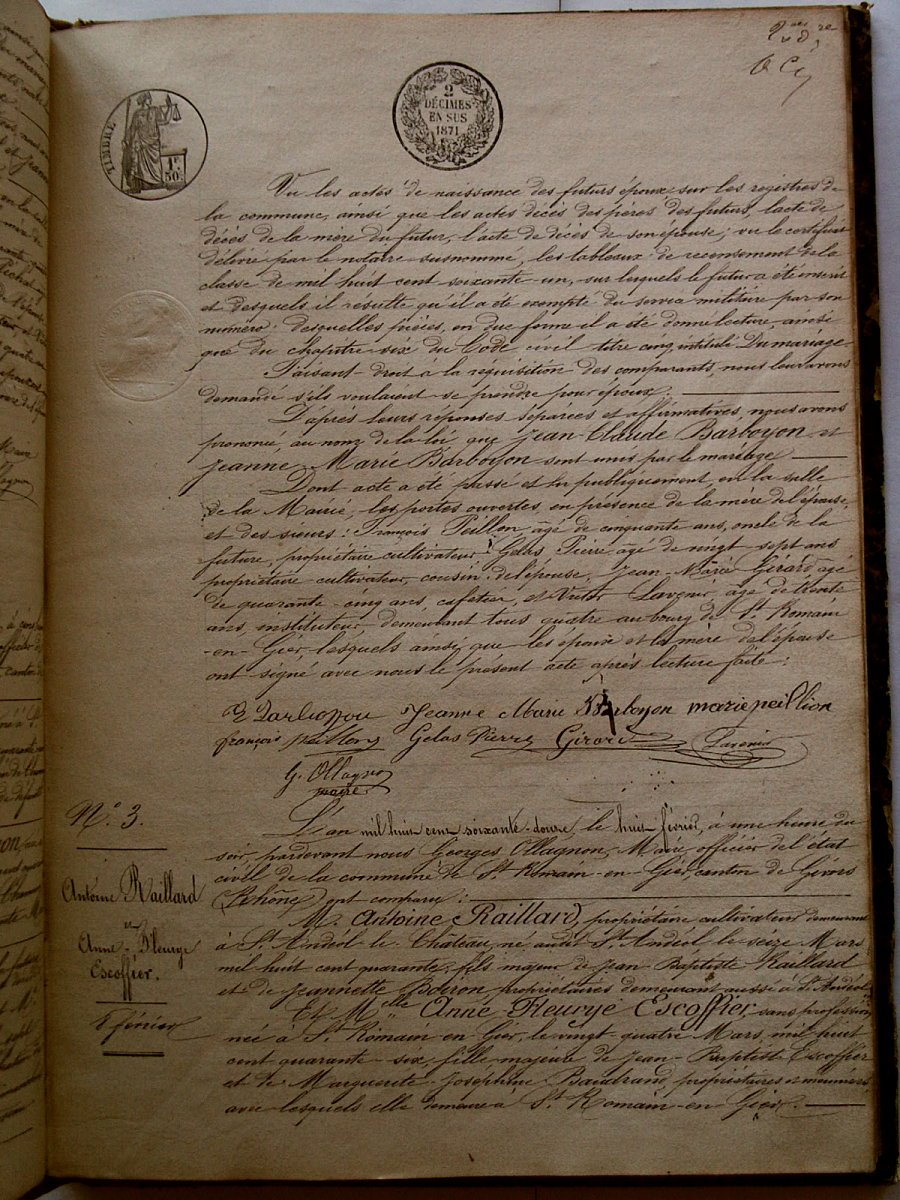 TIMBRE
1F
50c
2
DÉCIMES
EN SUS
1871
Vu les actes de naissance des futurs époux, sur les registres de
la commune, ainsi que les actes décès des pères des futurs, l'acte de
décès de la mère du futur, l'acte de décès de son épouse; vu le certificat
délivré par le notaire susnommé, les tableaux de recensement de la
classe de mil huit cent soixante un, sur lesquels le futur a été inscrit
et desquels il résulte qu'il a été exempté du service militaire par son
numéro: desquelles pièces, en due forme il a été donné lecture, ainsi
que du chapitre six du Code civil titre cinq, intitulé Du mariage.
Faisant droit à la réquisition des comparants, nous leur avons
demandé s'ils voulaient se prendre pour époux.
D'après leurs réponses séparées et affirmatives, nous avons
prononcé, au nom de la loi, que Jean-Claude Barboyon et
Jeanne Marie Barboyon sont unis par le mariage.
Dont acte a été passé et lu publiquement, en la salle
de la Mairie, les portes ouvertes, en présence de la mère de l'épouse,
et des sieurs: François Peillon, âgé de cinquante ans, oncle de la
future, propriétaire cultivateur; Gelas Pierre, âgé de vingt sept ans
propriétaire cultivateur, cousin de l'épouse, Jean-Marie Girard, âgé
de quarante-cinq ans, cafetier, et Victor Lavenir, âgé de trente
ans, instituteur, demeurant tous quatre au bourg de St Romain
-en-Gier, lesquels ainsi que les époux et la mère de l'épouse
ont signé avec nous le présent acte après lecture faite:
Jeanne Marie Barboyon marie peillion
françois peillon Gelas Pierre Girard Lavenir
G. Ollagnon
maire
N° 3.
Antoine Raillard
et
Anne-Fleurye
Escoffier.
8 février
L'an mil huit cent soixante-douze, le huit février, à une heure du
soir, pardevant nous Georges Ollagnon, Maire, officier de l'état
civil de la commune de St Romain-en-Gier, canton de Givors
(Rhône) ont comparu:
M. Antoine Raillard, propriétaire cultivateur demeurant
à St Andéol-le-Château, né audit St Andéol le seize Mars
mil huit cent quarante, fils majeur de Jean-Baptiste Raillard
et de Jeannette Boiron, propriétaires demeurant aussi à St Andéol
Et Melle Anne Fleurye Escoffier, sans profession
née à St Romain en Gier, le vingt quatre Mars, mil huit
cent quarante-six, fille majeure de Jean-Baptiste Escoffier
et de Marguerite-Joséphine Baudrand, propriétaires et meuniers
avec lesquels elle demeure à St Romain-en-Gier.